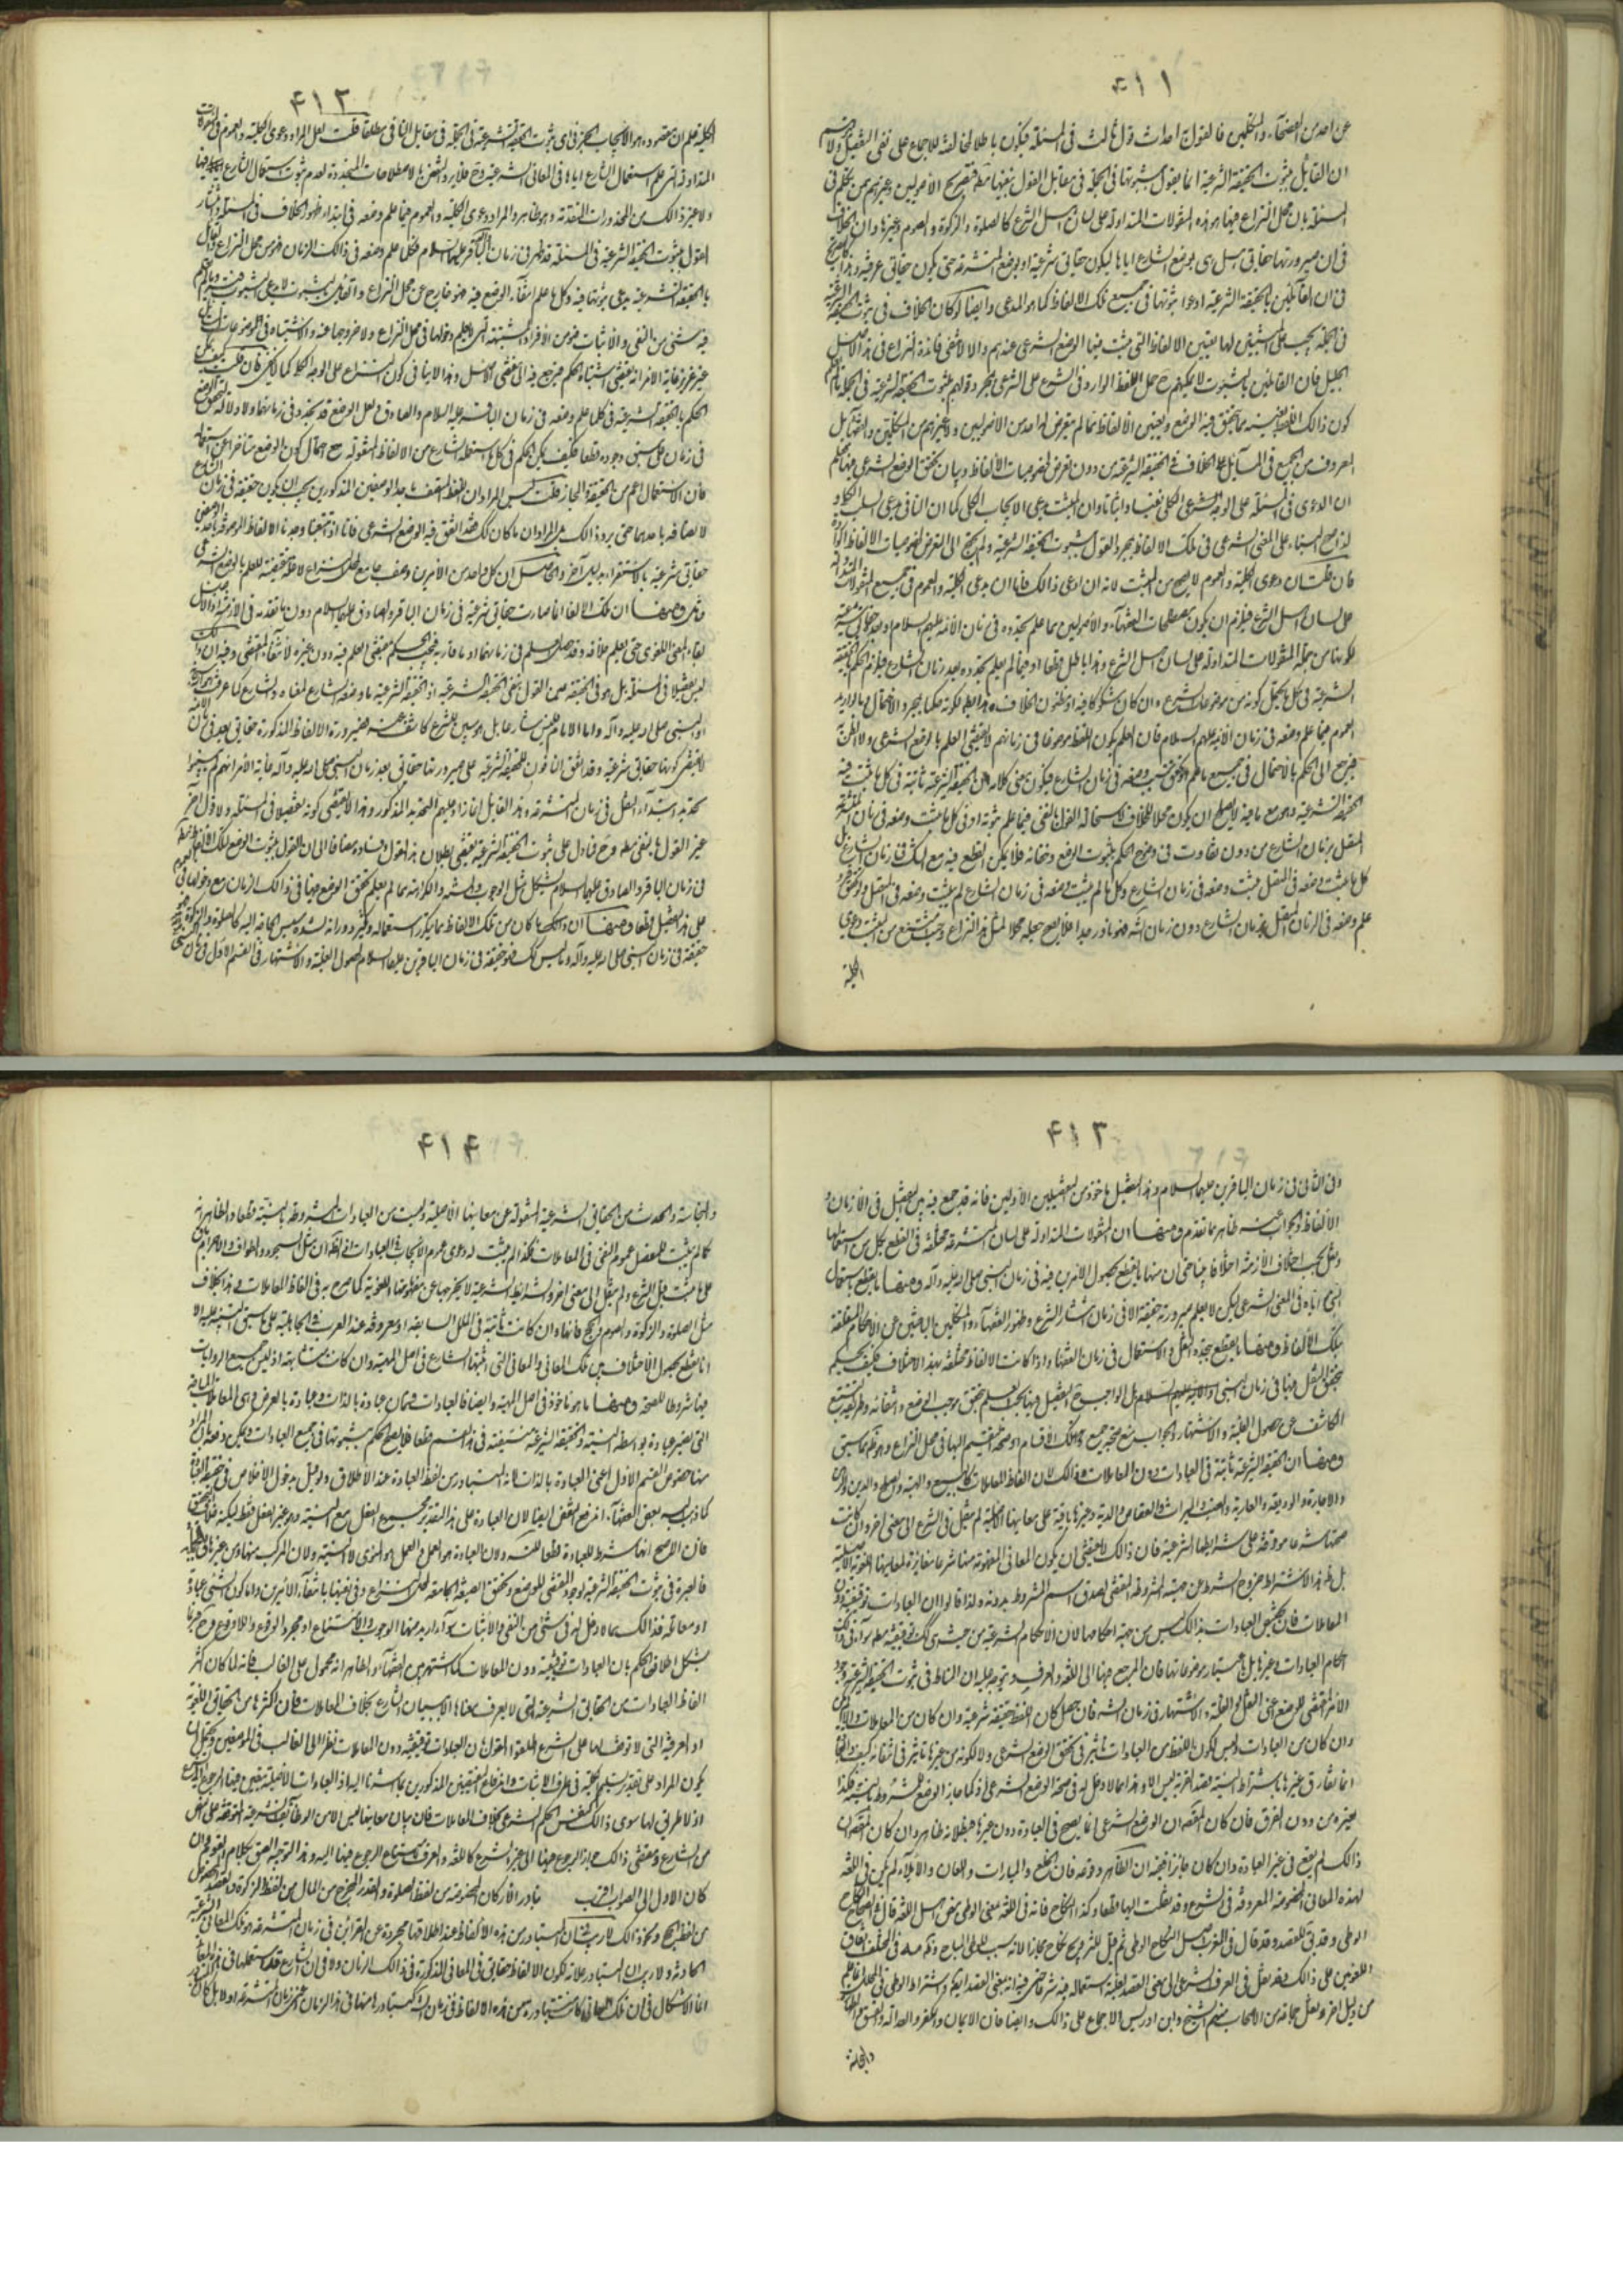 ۴۱۱
عن احد من الفصحاء والمتكلمين فالقول به احداث قول ثالث في المسئلة فيكون باطلا لمخالفته للاجماع على نفى التفصيل
ان القائل بثبوت الحقيقة الشرعية انما يقول بثبوتها في الجملة في مقابل القول بنفيها مطلقا الاصوليين وغيرهم
المسئلة بان محل النزاع فيها هو هذه المنقولات المتداولة على لسان اهل الشرع كالصلوة والزكوة والصوم وغيرها وان الخلاف
في ان صيرورتها حقايق هل هي بوضع الشارع اياها ليكون حقايق شرعية او بوضع المتشرعة حتى يكون حقايق عرفية
في ان القائلين بالحقيقة الشرعية ادعوا ثبوتها في جميع تلك الالفاظ كما هو المدعى وايضا لو كان الخلاف في ثبوت الحقيقة الشرعية
في الجملة يجب على المثبتين لها تعيين الالفاظ التي ثبت فيها الوضع الشرعي عندهم والا لانتفى فائدة النزاع في هذا الاصل
الجليل فان القائلين بالثبوت لا يمكنهم ح حمل اللفظ الوارد في الشرع على الشرعي بمجرد قولهم بثبوت الحقيقة الشرعية في الجملة
كون ذلك اللفظ بعينه مما تحقق فيه الوضع وتعيين الالفاظ مما لم يتعرض له احد من الاصوليين وغيرهم من المتكلمين
المعروف من الجميع في المسألة الخلاف في الحقيقة الشرعية من دون تعرض لخصوصيات الالفاظ وبيان تحقق الوضع الشرعي فيها
ان الدعوى في المسئلة على الوجه الكلى نفيا واثباتا وان المثبت يدعى الايجاب الكلى كما ان النافي يدعى السلب الكلى
لذا صح البناء على المعنى الشرعي في تلك الالفاظ بمجرد القول بثبوت الحقيقة الشرعية ولم يحتج الى التعرض لخصوصيات الالفاظ
فان قلت ان دعوى الكلية والعموم لا يصح من المثبت لانه ان ادعى ذلك فاما ان يدعى الكلية والعموم في جميع المنقولات المتداولة
على لسان اهل الشرع فيلزم ان يكون مصطلحات الفقهاء والاصوليين مما علم تجدده في زمان الائمة عليهم السلام وبعده حقايق شرعية
لكونها من جملة المنقولات المتداولة على لسان اهل الشرع وهذا باطل قطعا او فيما لم يعلم تجدده بعد زمان الشارع فيلزم الحكم بالحقيقة
الشرعية في كل ما يحتمل كونه من موضوعات الشرع وان كان مشكوكا فيه او مظنون الخلاف
العموم فيما علم وضعه في زمان الائمة عليهم السلام فان العلم بكون اللفظ موضوعا في زمانهم لا يقتضى العلم بالوضع الشرعي ولا الظن
فيرجع الى الحكم بالاحتمال في جميع ما لم يتحقق وضعه في زمان الشارع فيكون معنى كلامه ان الحقيقة الشرعية ثابتة في كل ما ثبت فيه
الحقيقة الشرعية وهو مع ما فيه لا يصلح ان يكون محلا للخلاف لاستحالة القول بالنفى فيما علم ثبوته او في كل ما ثبت وضعه في زمان المتشرعة
المتصل بزمان الشارع من دون تفاوت في وضوح الحكم بثبوت الوضع وخفائه فلا يمكن القطع فيه مع الشك في زمان الشارع
كل ما ثبت وضعه في المتصل فيثبت وضعه في زمان الشارع وكل ما لم يثبت وضعه في زمان الشارع لم يثبت وضعه في المتصل
علم وضعه في الزمان المتصل بزمان الشارع دون زمان الشارع فهو نادر جدا فلا يصح جعله محلا لمثل هذا النزاع وحيث امتنع من المثبت دعوى
الكلية
۴۱۲
الكلية علم ان مقصوده هو الايجاب الجزئى اى ثبوت الحقيقة الشرعية في الجملة في مقابل النافي مطلقا قلت لعل المراد دعوى الكلية والعموم في المنقولات
المتداولة التي علم استعمال الشارع اياها في المعاني الشرعية وح فلا يرد النقض بالاصطلاحات المتجددة لعدم ثبوت استعمال الشارع
ولا غير ذلك من المحذورات المتقدمة وهو ظاهر والمراد دعوى الكلية والعموم فيما علم وضعه في ابتداء ظهور الخلاف في المسئلة
القول بثبوت الحقيقة الشرعية في المسئلة قد ظهر في زمان الباقر عليه السلام فكل ما علم وضعه في ذلك الزمان فهو من محل النزاع
بالحقيقة الشرعية يدعى ثبوتها فيه وكل ما علم انتفاء الوضع فيه فهو خارج عن محل النزاع
فيه شئ من النفى والاثبات فهو من الافراد المشتبهة التي لا يعلم دخولها في محل النزاع ولا خروجها عنه والاشتباه في الموضوعات
غير عزيز غاية الامر انه يقتضى اشتباه الحكم فيرجع فيه الى مقتضى الاصل وهذا لا ينافي كون النزاع على الوجه الكلى كما لا يخفى فان قلت
الحكم بالحقيقة الشرعية في كل ما علم وضعه في زمان الباقر عليه السلام والصادق ولعل الوضع قد تجدد في زمانهما ولا دلالة
في زمان على سبق وجوده قطعا فكيف يمكن الحكم في كل ما استعمله الشارع من الالفاظ المنقولة مع احتمال كون الوضع متاخرا عن
فان الاستعمال اعم من الحقيقة والمجاز قلت ليس المراد ان اللفظ المتصف باحد الوصفين المذكورين يجب ان يكون حقيقة في زمان الشارع
لاتصافه باحدهما حتى يرد ذلك بل المراد ان ما كان كذلك فقد اتفق فيه الوضع الشرعي فانا اذا تتبعنا وجدنا الالفاظ الموصوفة
حقايق شرعية بالاستقراء
ومنها ان تلك الالفاظ انما صارت حقايق شرعية في زمان الباقر والصادق عليهما السلام دون ما تقدمه في الازمنة
بقاء المعنى اللغوى حتى يعلم خلافه وقد حصل العلم في زمانهما او ما قاربه فيجب الحكم بمقتضى العلم فيه دون غيره لانتفاء المقتضى وفيه ان ذلك
ليس تفصيلا في المسئلة بل هو في الحقيقة عين القول بنفى الحقيقة الشرعية اذ الحقيقة الشرعية ما وضعه الشارع لمعناه والشارع كما عرفت هو الله
او النبي صلى الله عليه وآله واما الامام فليس شارعا بل هو مبين للشرع كاشف عنه فصيرورة الالفاظ المذكورة حقايق بعد في زمان الائمة
لا يقتضى كونها حقايق شرعية وقد اتفق النافون للحقيقة الشرعية على صيرورتها حقايق بعد زمان النبي صلى الله عليه وآله غاية الامر انهم لم يعينوا
تحديد ابتداء النقل في زمان المتشرعة وهذا القايل انما زاد عليهم التحديد المذكور وهذا لا يقتضى كونه تفصيلا في المسئلة ولا قول اخر
غير القول بالنفى مطلقا وح فما دل على ثبوت الحقيقة الشرعية يقتضى بطلان هذا القول وفساده مضافا الى ان القول بثبوت الوضع لتلك الالفاظ
في زمان الباقر والصادق عليهما السلام يشكل في مثل الوجوب والسنة والكراهة مما لم يعلم تحقق الوضع فيها في ذلك الزمان مع دخولها
على هذا التفصيل قطعا ومنها ان ما كان من تلك الالفاظ مما يكثر استعماله ويكثر دورانه لشدة مسيس الحاجة اليه كالصلوة والزكوة
حقيقة في زمان النبي صلى الله عليه وآله وما ليس كذلك فهو حقيقة في زمان الباقرين عليهما السلام لحصول الغلبة والاشتهار في القسم الاول في زمان النبي
۴۱۳
وفي الثاني في زمان الباقرين عليهما السلام وهذا التفصيل ماخوذ من التفصيلين الاولين فانه قد جمع فيه بين التفصيل في الازمان و
الالفاظ والجواب عنه ظاهر مما تقدم ومنها ان المنقولات المتداولة على لسان المتشرعة مختلفة في القطع بكل من استعمالها
ونقلها بحسب اختلاف الازمنة اختلافا بينا حتى ان منها ما يقطع بحصول الامرين فيه في زمان النبي صلى الله عليه وآله ومنها ما يقطع باستعمال
النبي اياه في المعنى الشرعي لكن لا يعلم صيرورته حقيقة الا في زمان انتشار الشرع وظهور الفقهاء والمتكلمين الباحثين عن الاحكام المتعلقة
بتلك الالفاظ ومنها ما يقطع بتجدد النقل والاستعمال في زمان الفقهاء واذا كانت الالفاظ مختلفة بهذا الاختلاف فكيف يحكم
بتحقق النقل فيها في زمان النبي والائمة عليهم السلام بل الواجب ح التفصيل فيها بحسب العلم بتحقق موجب الوضع وانتفائه وطريقه التتبع
الكاشف عن حصول الغلبة والاشتهار والجواب منع دخول جميع تلك الاقسام او صحة التقسيم اليها في محل النزاع وهو ظاهر مما سبق
ومنها ان الحقيقة الشرعية ثابتة في العبادات دون المعاملات وذلك لان الفاظ المعاملات كالبيع والهبة والصلح والدين والرهن
والاجارة والوديعة والعارية والميراث والقصاص والدية وغيرها باقية على معانيها الاصلية لم تنقل في الشرع الى معنى اخر وان كانت
صحتها شرعا موقوفة على شرائطها الشرعية فان ذلك لا يقتضى ان يكون المعاني المفهومة منها شرعا مغايرة لمعانيها اللغوية الاصلية
بل ظاهر الاشتراط خروج الشرط عن حقيقة المشروط المقتضى لصدق اسم المشروط بدونه ولذا قالوا ان العبادات توقيفية دون
المعاملات فان تخصيص العبادات بذلك ليس من جهة احكامها لان الاحكام الشرعية من حيث هي كذلك توقيفية مطلقا سواء في ذلك
احكام العبادات وغيرها بل باعتبار موضوعاتها فان المرجع فيها الى اللغة والعرف ويتوجه عليه ان المناط في ثبوت الحقيقة الشرعية وجود
الامر المقتضى للوضع اعنى النقل او الغلبة والاشتهار في زمان الشارع فان حصل كان اللفظ حقيقة شرعية وان كان من المعاملات والا لم يكن
وان كان من العبادات وليس لكون اللفظ من العبادات تأثير في تحقق الوضع الشرعي ولا لكونه من غيرها تأثير في انتفائه كيف والعبادة
انما تفارق غيرها باشتراط النية بقصد القربة ليس الا وهذا مما لا دخل له في صحة الوضع الشرعي اذ كما جاز الوضع للمشروط بالنية فكذا
بغيره من دون الفرق فان كان المقصود ان الوضع الشرعي انما يصح في العبادة دون غيرها فبطلانه ظاهر وان كان المقصود ان
ذلك لم يقع في غير العبادة وان كان جائزا فيه ان الظاهر وقوعه فان الخلع والمبارات واللعان والايلاء لم يكن في اللغة
لهذه المعاني المخصوصة المعروفة في الشرع وقد نقلت اليها قطعا وكذا النكاح فانه في اللغة بمعنى الوطى بنص اهل اللغة قال في الصحاح النكاح
الوطى وقد يق للعقد وقد قال في المغرب اصل النكاح الوطى ثم قيل للتزويج نكاح مجازا لانه سبب للوطى المباح وفي المختلف اتفاق
اللغويين على ذلك وقد نقل في العرف الشرعي الى معنى العقد لغلبة استعماله فيه شرعا حتى قيل انه
من دليل اخر ونقل جماعة من الاصحاب منهم الشيخ وابن ادريس الاجماع على ذلك وايضا فان الايمان والكفر والعدالة والفسق والطهارة
والنجاسة
۴۱۴
والنجاسة والحدث من الحقايق الشرعية المنقولة عن معانيها الاصلية وليست من العبادات المشروطة بالنية قطعا والظاهر انه
كما لم يثبت للمفصل عموم النفى في المعاملات فكذا لم يثبت له دعوى عموم الاثبات في العبادات اذ الظاهر ان مثل السجود والطواف والاحرام باق
على ما ثبت قبل الشرع ولم ينقل الى معنى اخر واشتراط الشرائط الشرعية لا يخرجها عن مفهوماتها اللغوية كما صرح به في الفاظ المعاملات وهذا بخلاف
مثل الصلوة والزكوة والصوم والحج فانها وان كانت ثابتة في الملل السابقة او معروفة عند العرب في الجاهلية على ما سبق التنبيه عليه الا
انا نقطع بحصول الاختلاف بين تلك المعاني والمعاني التي اثبتها الشارع في اصل المهية وان كانت متشابهة اذ ليس جميع الزوايد
فيها شروطا للصحة ومنها ما هو ماخوذ في اصل المهية وايضا فالعبادات قسمان عبادة بالذات وعبادة بالعرض وهي المعاملات
التي تصير عبادة بواسطة النية والحقيقة الشرعية منتفية في هذا القسم قطعا فلا يصح الحكم بثبوتها في جميع العبادات
منها خصوص القسم الاول اعنى العبادة بالذات لانه المتبادر من لفظ العبادة عند الاطلاق ولو قيل بدخول الاخلاص في حقيقة العبادة
كما ذهب اليه بعض الفقهاء اندفع النقض ايضا لان العبادة على هذا التقدير مجموع الفعل مع النية وهو غير الفعل فقط
فان الاصح انها شرط للعبادة قطعا ولان العبادة هو العمل والعمل هو المنوى لا النية ولان المركب منها ومن غيرها
فالعبرة في ثبوت الحقيقة الشرعية لوجود المقتضى للوضع وتحقق الصفة الجامعة لمحل النزاع وفي نفيها بانتفاء الامرين واما كون الشئ عبادة
او معاملة فذلك مما لا دخل له في شئ من النفى والاثبات سواء اريد منهما الوجوب والامتناع او مجرد الوقوع واللاوقوع وح فربما
يشكل اطلاق الحكم بان العبادات توقيفية دون المعاملات كما اشتهر بين الفقهاء والظاهر انه محمول على الغالب فانه لما كان اكثر
الفاظ العبادات من الحقايق الشرعية التي لا يعرف معناها الا ببيان الشارع بخلاف المعاملات فان اكثرها من الحقايق اللغوية
او العرفية التي لا توقف لها على الشرع اطلقوا القول بان العبادات توقيفية دون المعاملات نظرا الى الغالب في الموضعين ويحتمل ان
يكون المراد على تقدير تسليم الكلية في طرف الاثبات واندفاع النقضين المذكورين بما اشرنا اليه اذ العبادات الاصلية يتعين فيها الرجوع الى الشرع
اذ لا طريق لها سوى ذلك كنفس الحكم الشرعي بخلاف المعاملات فان بيان معانيها ليس الا من الوظايف الشرعية الموقوفة على النص
من الشارع ومقتضى ذلك جواز الرجوع فيها الى غير الشرع كاللغة والعرف لا امتناع الرجوع فيها اليه وهذا التوجيه الصق بكلام القوم وان
كان الاول الى الصواب اقرب تبادر الاركان المخصوصة من لفظ الصلوة والقدر المخرج من المال من لفظ الزكوة والقصد الى البيت
من لفظ الحج ونحو ذلك لا ريب في ان المتبادر من هذه الالفاظ عند اطلاقها مجردة عن القرائن في زمان المتشرعة هو تلك المعاني الشرعية
الحادثة ولا ريب ان التبادر علامة لكون الالفاظ حقايق في المعاني المذكورة في ذلك الزمان ولا في ان الشارع قد استعملها في هذه المعاني
انما الاشكال في ان تلك المعاني كانت متبادرة من هذه الالفاظ في زمان الشارع كتبادرها منها في هذا الزمان اعنى زمان المتشرعة او لا بل كان